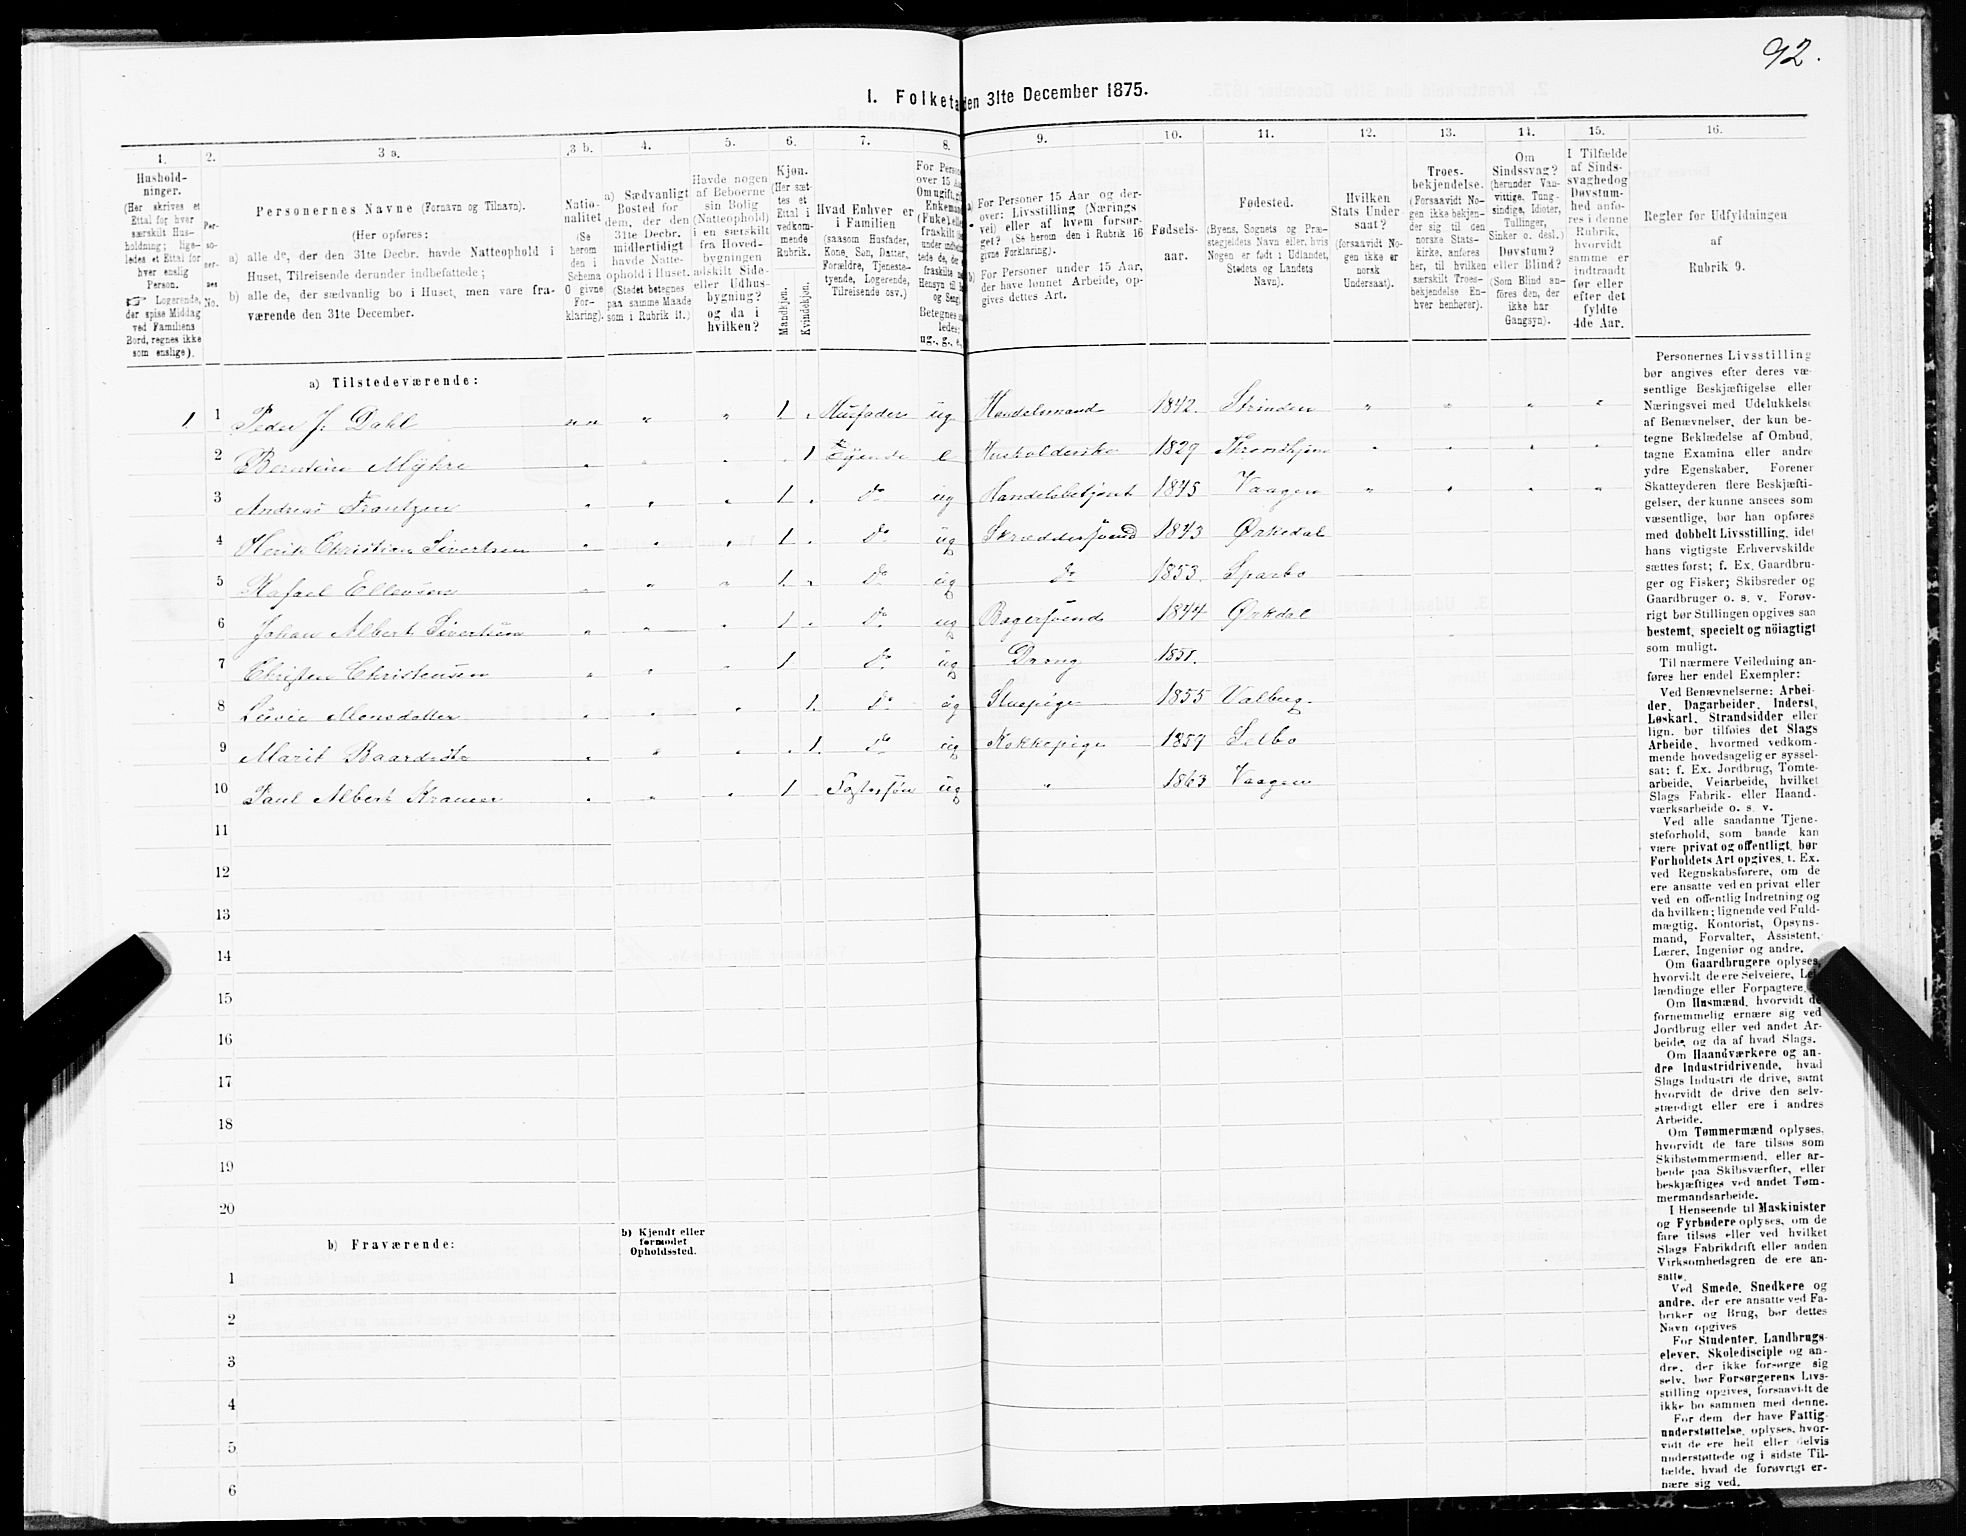 92.
I. Folketæ den 31te December 1875.
1. 2. 3 a. 3 b. 4. 5. 6. 7. 8. 9. 10. 11. 12. 13. 14. 15. 16.
Hushold-
ninger.
(Her skrives et
Ettal for hver
særskilt Hus-
holdning; lige-
ledes et Ettal for
hver enslig
Person.
☞ Logerende,
der spise Middag
ved Familiens
Bord, regnes ikke
som enslige).
Per-
so-
ner-
nes
No.
Personernes Navne (Fornavn og Tilnavn).
(Her opføres:
a) alle de, der den 31te Decbr. havde Natteophold i
Huset, Tilreisende derunder indbefattede;
b) alle de, der sædvanlig bo i Huset, men vare fra-
værende den 31te December.
Natio-
nalitet
(Se
herom
den i
Schema
O givne
For-
klaring).
a) Sædvanligt
Bosted for
dem, der den
31te Decbr.
midlertidigt
havde Natte-
ophold i Huset.
(Stedet betegnes
paa samme Maade
som i Rubrik 11.)
Havde nogen
af Beboerne
sin Bolig
(Natteophold)
i en særskilt
fra Hoved-
bygningen
adskilt Side-
eller Udhus-
bygning?
og da i
hvilken?
Kjøn.
(Her sæt-
tes et
Ettal i
vedkom-
mende
Rubrik.
Mandkjøn.
Kvindekjøn.
Hvad Enhver er
i Familien
(saasom Husfader,
Kone, Søn, Datter,
Forældre, Tjeneste-
tyende, Logerende,
Tilreisende osv.)
For Person
over 15 Aa
Om ugift, gi
Enkema
(Fuke), elle
fraskilt
ug., g., e.,
a) For Personer 15 Aar og der-
over: Livsstilling (Nærings-
vei) eller af hvem forsør-
get? (Se herom den i Rubrik 16
givne Forklaring).
b) For Personer under 15 Aar,
der have lønnet Arbeide, op-
gives dettes Art.
Fødsels-
aar.
Fødested.
(Byens, Sognets og Præ-
stegjeldets Navn eller, hvis
Nogen er født i Udlandet,
Stedets og Landets
Navn).
Hvilken
Stats Under-
saat?
(forsaavidt No-
gen ikke er
norsk
Undersaat).
Troes-
bekjendelse.
(Forsaavidt No-
gen ikke bekjen-
der sig til den
norske Stats-
kirke, anføres
her, til hvilken
særskilt Troes-
bekjendelse En-
hver henhører).
Om
Sindssvag?
(herunder Van-
vittige, Tung-
sindige, Idioter,
Tullinger,
Sinker o. desl.)
Døvstum?
eller Blind?
(Som Blind an-
føres den, der
ikke har
Gangsyn).
I Tilfælde
af Sinds-
svaghed og
Døvstum-
hed anfø-
res i denne
Rubrik,
hvorvidt
samme er
indtraadt
før eller
efter det
fyldte
4de Aar.
Regler for Udfyldningen
af
Rubrik 9.
a) Tilstedeværende:
1. 1 Peder J. Dahl " " " " 1 . Husfader ug Handelsmand 1842. Strinden " " " "
2 Berntine Myhre 1 Tyende e Husholderske 1829 Throndhjem
3 Andreas Frantzen 1 Do ug Handelsbetjent 1845 Vaagen
4 Henrik Christian Sivertsen 1 Do ug Skræddersvend 1843 Ørkedal
5 Rafael Ellevsen 1 Do ug Do 1853. Sparbo
6 Johan Albert Sivertsen 1 Do ug Bagersvend 1844 Ørkdal
7 Christen Christensen 1 Do ug Dreng 1851.
8 Monsdatter 1. Do ug Stuepige 1855 Valberg
9 Marit Baardsdt 1. Do ug Kokkepige 1859 Selbo
10 Paul Albert Kramer 1 ug " 1863 Vaagen
11
12
13
14
15
16
17
18
19
20
b) Fraværende:
b) Kjendt eller
formodet
Opholdssted.
1
2
3
4
5
6
Personernes Livsstilling
bør angives efter deres væ-
sentlige Beskjæftigelse eller
Næringsvei med Udelukkelse
af Benævnelser, der kun be-
tegne Beklædelse af Ombud,
tagne Examina eller andre
ydre Egenskaber. Forener
Skatteyderen flere Beskjæfti-
gelser, der kunne ansees som
væsentlige, bør han opføres
med dobbelt Livsstilling, idet
hans vigtigste Erhvervskilde
sættes først; f. Ex. Gaardbru-
ger og Fisker; Skibsreder og
Gaardbruger o. s. v. Forøv-
rigt bør Stillingen opgives saa
bestemt, specielt og nöiagtigt
som muligt.
Til nærmere Veiledning an-
føres her endel Exempler:
Ved Benævnelserne: Arbei-
der, Dagarbeider, Inderst,
Løskarl, Strandsidder eller
lign. bør tilføies det Slags
Arbeide, hvormed vedkom-
mende hovedsagelig er syssel-
sat; f. Ex. Jordbrug, Tomte-
arbeide, Veiarbeide, hvilket
Slags Fabrik- eller Haand-
værksarbeide o. s. v.
Ved alle saadanne Tjene-
steforhold, som baade kan
være privat og offentligt, bør
Forholdets Art opgives, t. Ex.
ved Regnskabsførere, om de
ere ansatte ved en privat eller
ved en offentlig Indretning og
da hvilken; lignende ved Fuld-
mægtig, Kontorist, Opsyns-
mand, Forvalter, Assistent,
Lærer, Ingeniør og andre.
Om Gaardbrugere oplyses,
hvorvidt de ere Selveiere, Lei-
lændinge eller Forpagtere.
Om Husmænd, hvorvidt de
fornemmelig ernære sig ved
Jordbrug eller ved andet Ar-
beide, og da af hvad Slags.
Om Haandværkere og an-
dre Industridrivende, hvad
Slags Industri de drive, samt
hvorvidt de drive den selv-
stændigt eller ere i andres
Arbeide.
Om Tømmermænd oplyses,
hvorvidt de fare tilsøs som
Skibstømmermænd, eller ar-
beide paa Skibsværfter, eller
beskjæftiges ved andet Tøm-
mermandsarbeide.
I Henseende til Maskinister
og Fyrbødere oplyses, om de
fare tilsøs eller ved hvilket
Slags Fabrikdrift eller anden
Virksomhedsgren de ere an-
satte.
Ved Smede, Snedkere og
andre, der ere ansatte ved Fa-
briker og Brug, bør dettes
Navn opgives
For Studenter, Landbrugs-
elever, Skoledisciple og an-
dre, der ikke forsørge sig
selv, bør Forsørgerens Livs-
stilling opgives, forsaavidt de
ikke bo sammen med denne.
For dem, der have Fattig-
understøttelse, oplyses, hvor-
vidt de ere helt eller delvis
understøttede og i sidste Til-
fælde, hvad de forøvrigt er-
nære sig ved.